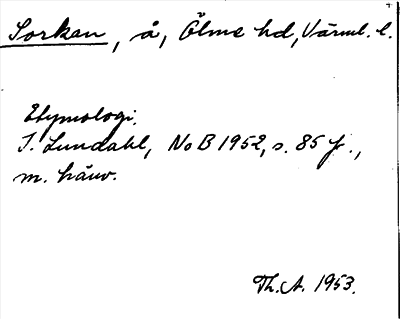 Sorkan, å, Ölme hd, Värml. l.
Etymologi.
I. Lundahl, NoB 1952, s. 85 f.,
m. hänv.
Th. A. 1953.